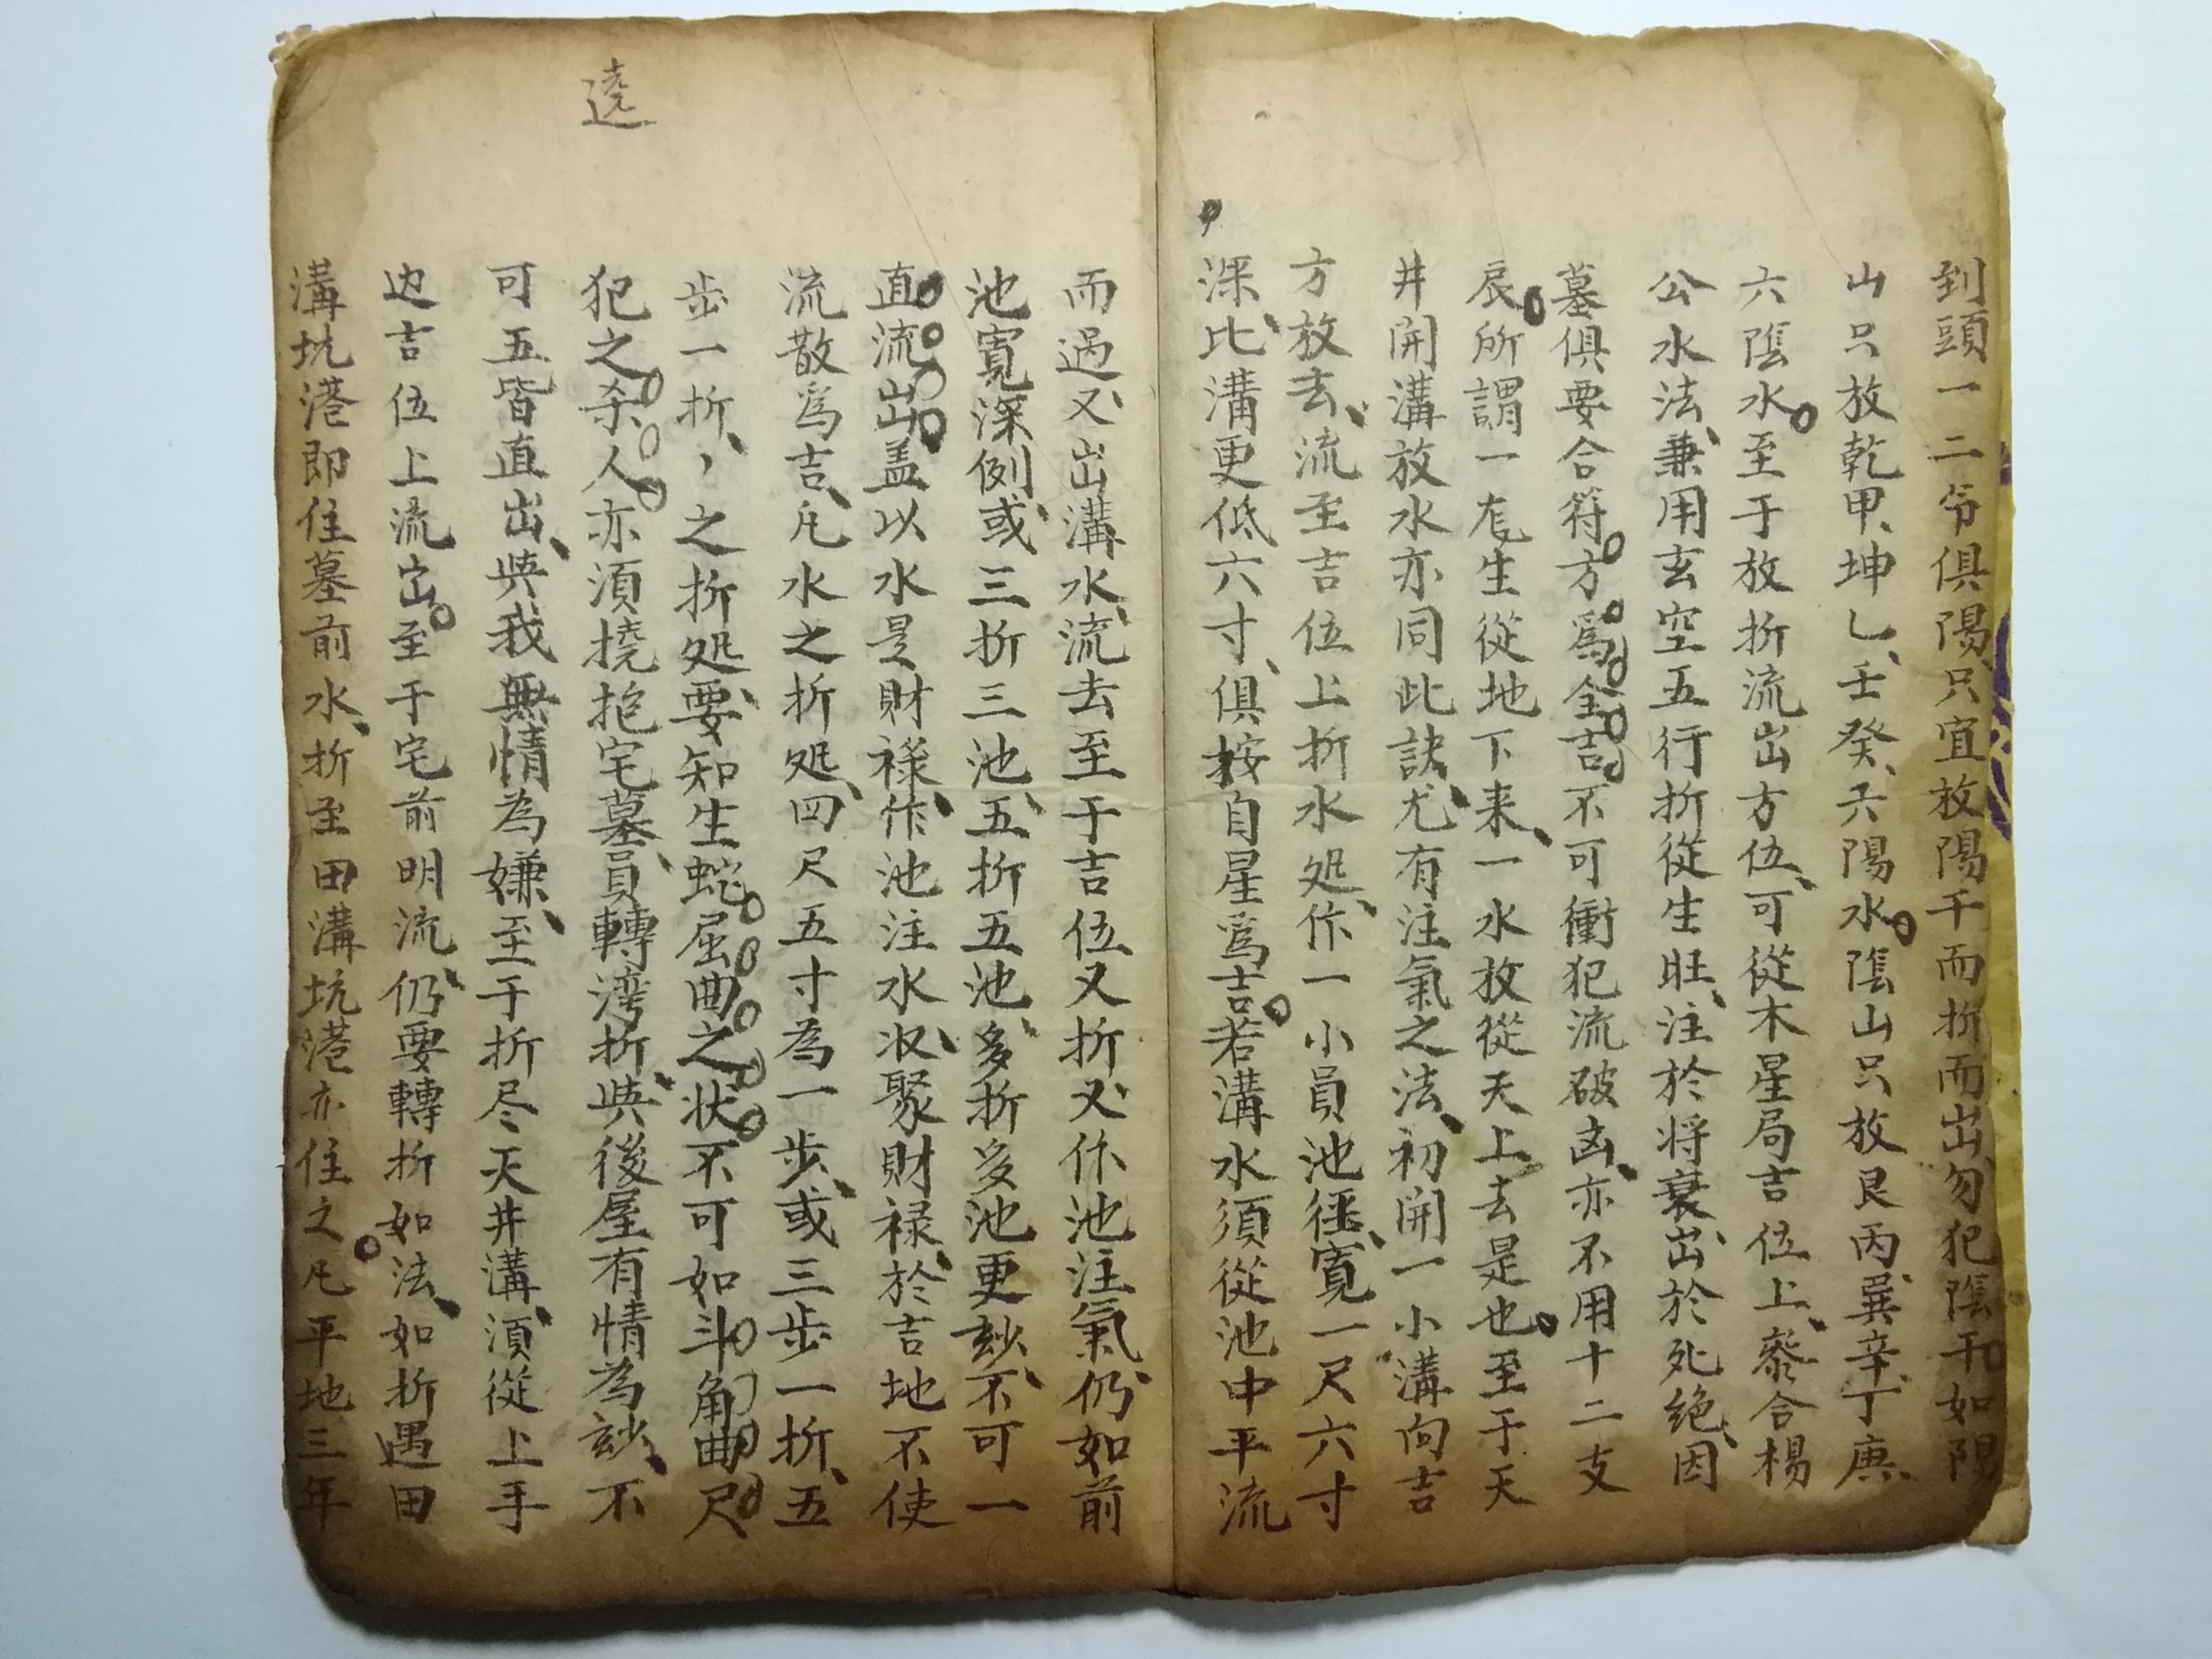 到頭一二爷俱陽只宜放陽干而折而出勿犯陰干如陽
山只放乾甲坤乚壬癸六陽水陰山只放艮丙巽辛丁庚
六陰水至于放折流出方位可從木星局吉位上叅合楊
公水法兼用玄空五行折從生旺注於将衰出於死绝因
墓俱要合符方爲全吉不可衝犯流破凶亦不用十二支
辰所謂一生從地下来一水放從天上去是也至于天
井開溝放水亦同此訣尤有注氣之法初開一小溝向吉
方放去流至吉位上折水処作一小員池徑寬一尺六寸
深比溝更低六寸俱按自星爲吉若溝水須從池中平流
而過又出溝水流去至于吉位又折又作池注氣仍如前
池寬深例或三折三池五折五池多折多池更玅不可一
直流出盖以水是財禄作池注水収聚財禄於吉地不使
流散爲吉凡水之折処四尺五寸為一步或三步一折五
步一折之折処要知生蛇屈曲之状不可如斗角曲尺
犯之杀人亦須撓抱宅墓員轉湾折與後屋有情為玅不
可五皆直出與我無情為嫌至于折尽天井溝須從上手
边吉位上流出至于宅前明流仍要轉折如法如折遇田
溝坑港即住墓前水折至田溝坑港亦住之凡平地三年
遶